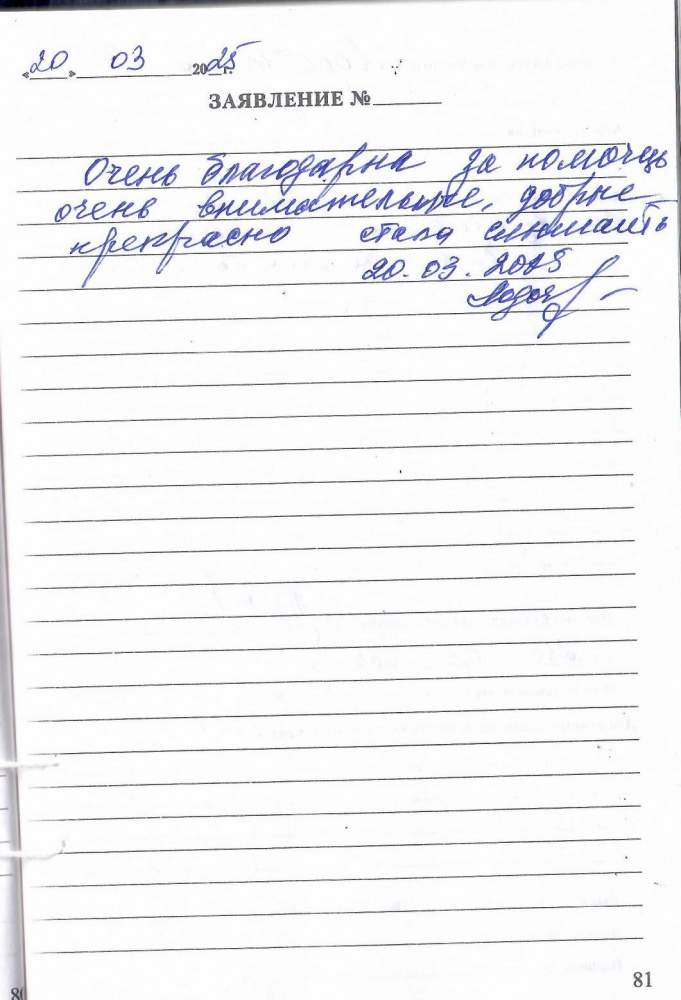 «20» 03 2025 г.
ЗАЯВЛЕНИЕ №
Очень благодарна за помощь
очень внимательные, добрые
прекрасно стала слышать
20.03.2025
81